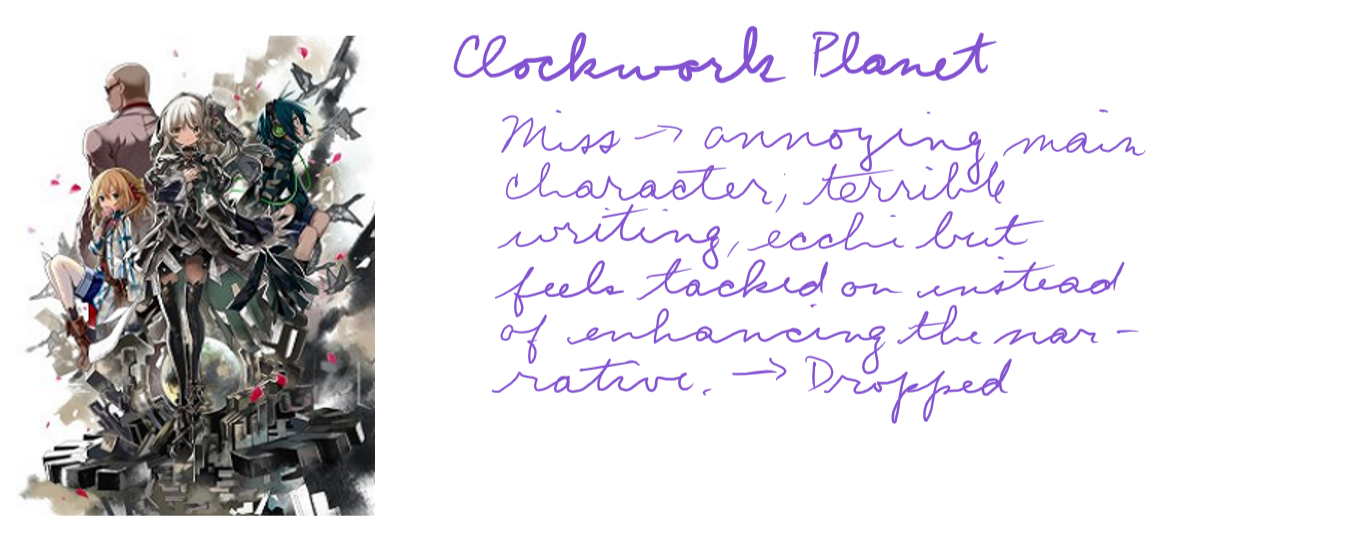 Clockwork Planet
Miss → annoying main
character; terrible
writing, ecchi but
feels tacked on instead
of enhancing the nar-
rative. → Dropped